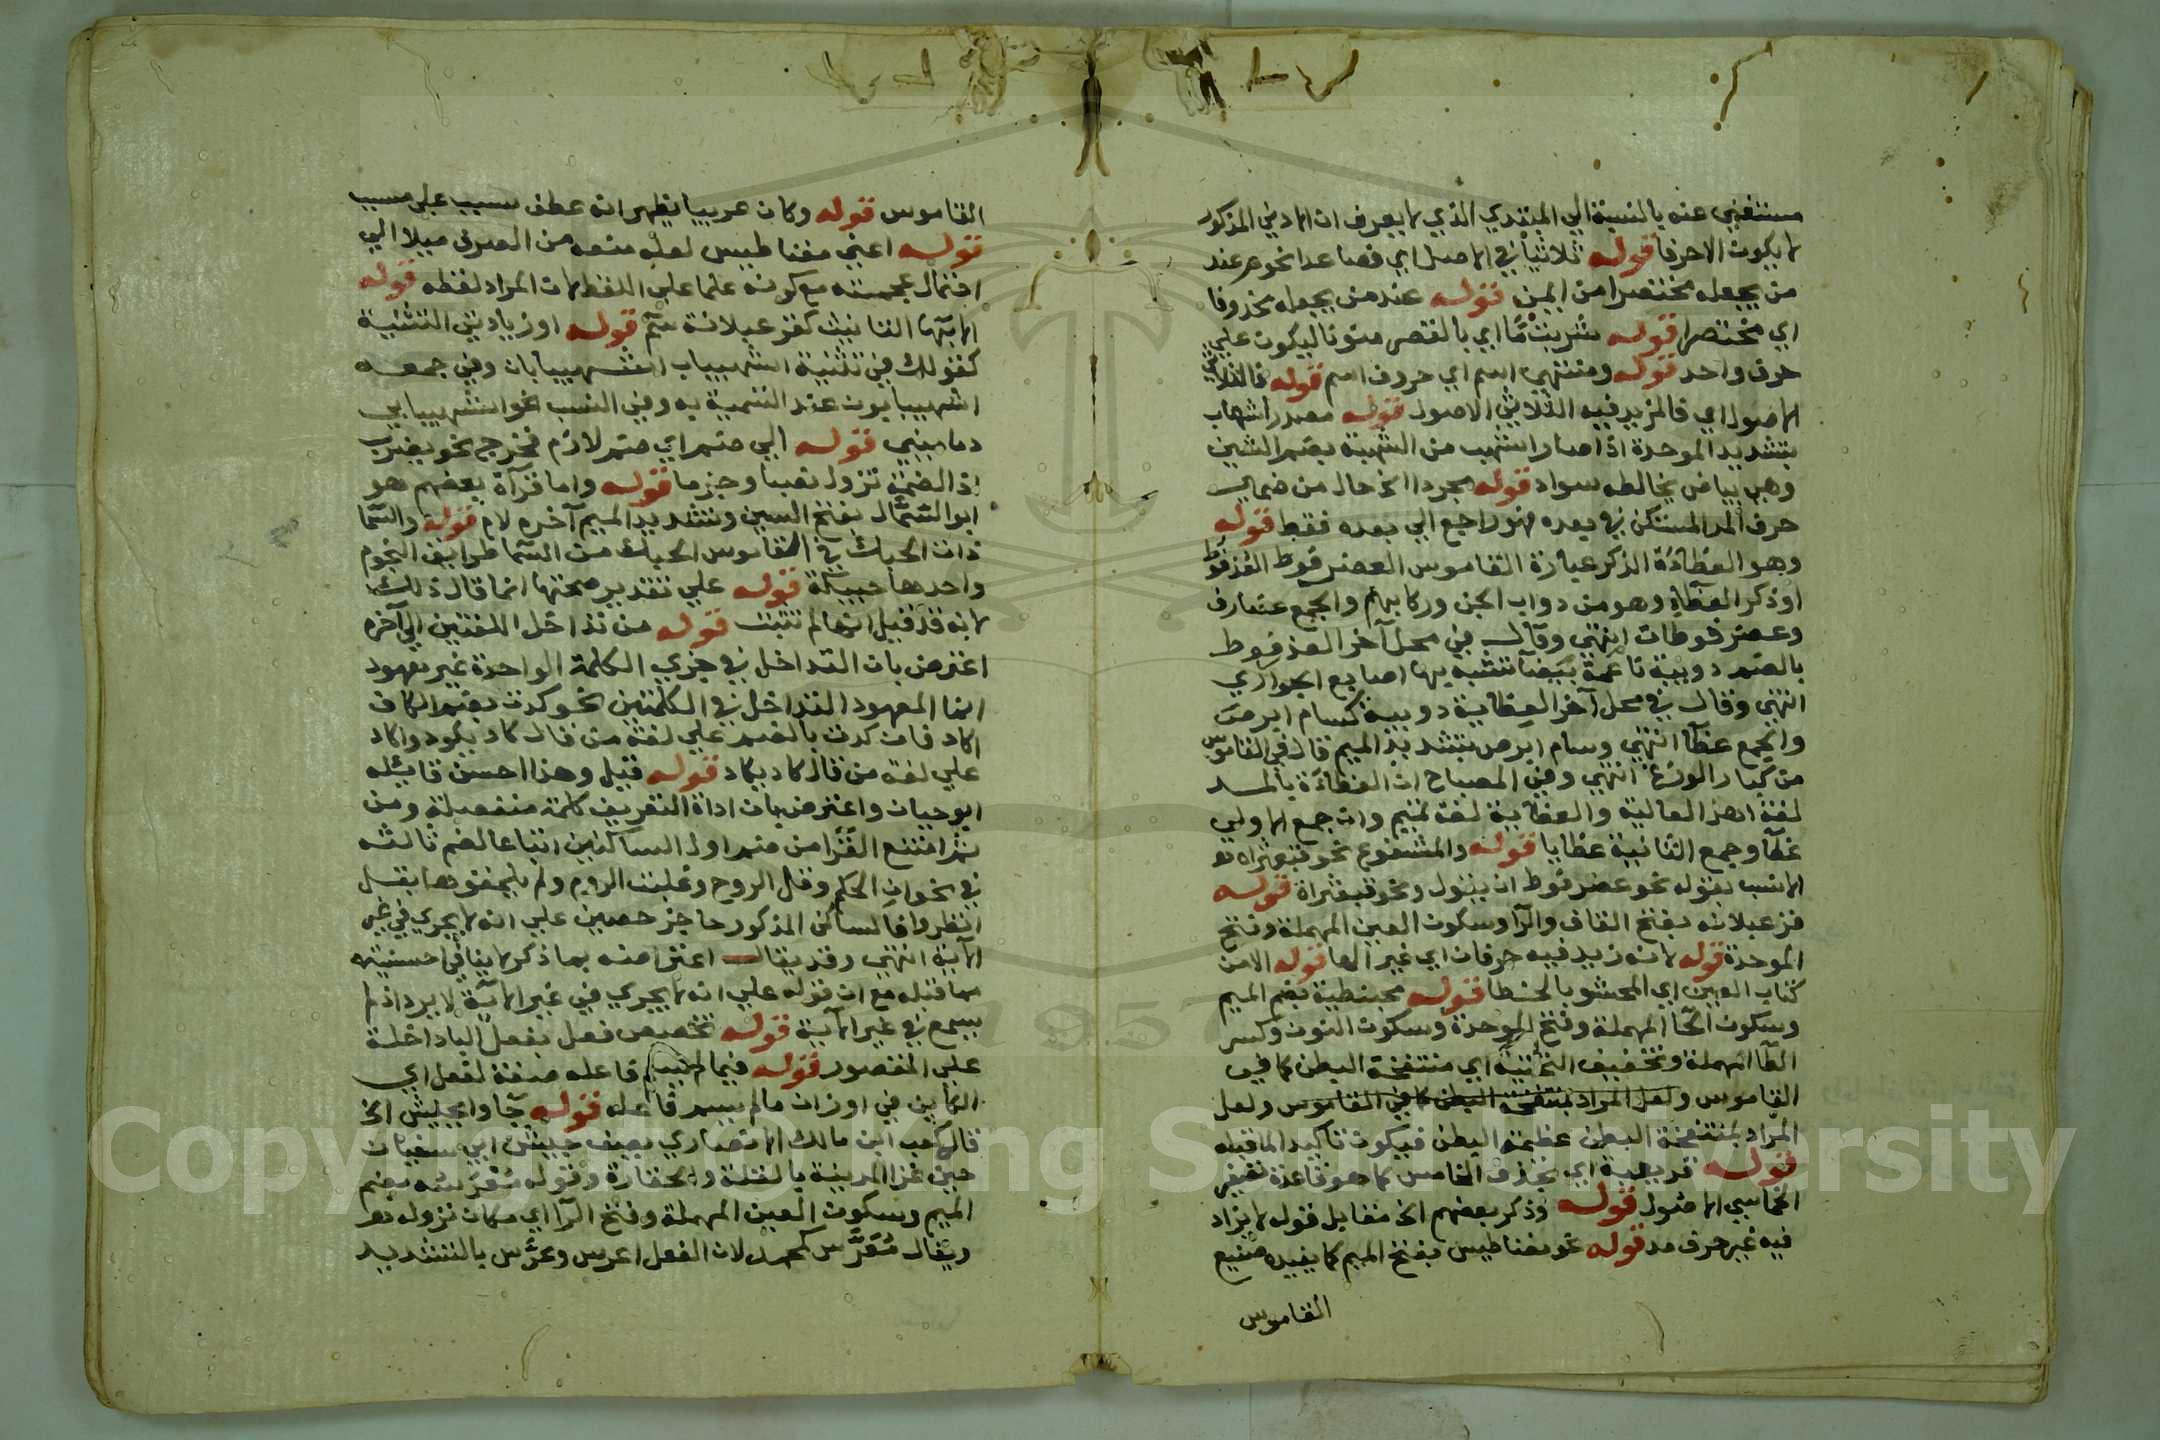 مستغني عنه بالنسبة الي المبتدي الذي لا يعرف ان الادني المذكور
لا يكون الاحرفا قوله ثلاثيا في الاصل اي فصاعدا نحو عد عند
من يجعله مختصرا من ايمن قوله عند من يجعله محذوفا
اي مختصرا قوله شربت مًا اي بالقصر منونا ليكون علي
حرف واحد قوله ومنتهي اسم اي حروف اسم قوله فالثلاثي
الاصول اي فالمزيد فيه الثلاثي الاصول قوله مصدر اشهاب
بتشديد الموحدة اذا صار اشهب من الشهبة بضم الشين
وهي بياض يخالطه سواد قوله مجردا الخ حال من ضمير
حرف المد المستكن في بعده فهو راجع الي بعده فقط قوله
وهو العظاءة الذكر عبارة القاموس العضرفوط العذفوط
او ذكر العظاء وهو من دواب الجن وركابهم والجمع عضارف
وعضرفوطات انتهي وقال في محل آخر العذفوط
بالضم دويبة ناعمة بيضآ تشبه بها اصابع الجواري
انتهي وقال في محل آخر العظاية دويبة كسام ابرص
والجمع عظآ انتهي وسام ابرص بتشديد الميم قال في القاموس
من كبار الوزغ انتهي وفي المصباح ان العظاءة بالمد
لغة اهل العالية والعظاية لغة تميم وان جمع الاولي
عظآ وجمع الثانية عظايا قوله والمشفوع نحو قبعثراه
الانسب بقوله نحو عضرفوط ان يقول ونحو قبعثراة قوله
قزعبلانه بفتح القاف والرآ وسكون العين المهملة وفتح
الموحدة قوله لانه زيد فيه حرفان اي غير الها قوله الامن
كتاب العين اي المحشو بالخطا قوله محبنطية بضم الميم
وسكون الحآ المهملة وفتح الموحدة وسكون النون وكسر
الطآ المهملة وتخفيف التحتية اي منتفخة البطن كما في
القاموس ولعل المراد بمنتفخة البطن كما في القاموس ولعل
المراد بمنتفخة البطن عظيمة البطن فيكون تاكيد الماقبله
قوله قريعبة اي بحذف الخامس كما هو قاعدة تصغير
الخماسي الاصول قوله وذكر بعضهم الخ مقابل قوله لا يزاد
فيه غير حرف مد قوله نحو مغناطيس بفتح الميم كما يفيده صنيع
القاموس
القاموس قوله وكان عربيا يظهر انه عطف سبب علي مسبب
قوله اعني مغناطيس لعله منعه من الصرف ميلا الي
احتمال عجمته مع كونه علما علي اللفظ لان المراد لفظه قوله
الا بهآ التانيث كقزعبلانة سم قوله او زيادتي التثنية
كقولك في تثنية اشهيباب اشهيبابان وفي جمعه
اشهيبابون عند التسمية به وفي النسب نحو اشهيبابي
دماميني قوله الي ضم اي ضم لازم فخرج نحو يضرب
اذ الضمة تزول نصبا وجزما قوله واما قرآة بعضهم هو
ابو السَّمَّال بفتح السين وتشديد الميم آخره لام قوله والسما
ذات الحبك في القاموس الحبك من السما طرايق النجوم
واحدها حبيكة قوله علي تقدير صحتها انما قال ذلك
لانه قد قيل انها لم تثبت قوله من تداخل اللغتين الي آخره
اعترض بان التداخل في جزي الكلمة الواحدة غير معهود
انما المعهود التداخل في الكلمتين نحو كدت بضم الكاف
اكاد فان كدت بالضم علي لغة من قال كاد يكود واكاد
علي لغة من قال كاد يكاد قوله قيل وهذا احسن قايله
ابو حيان واعترض بان اداة التعريف كلمة منفصلة ومن
ثم امتنع القرا من ضم اول الساكنين اتباعا لضم ثالثه
في نحو ان الحكم وقل الروح وغلبت الروم ولم يلحقوها بقل
انظروا فالساكن المذكور حاجز حصين علي انه لا يجري في غير
الآية انتهي وقد يقال اعتراضه بما ذكر لا ينافي احسنيته
مما قبله مع ان قوله علي انه لا يجري في غير الآية لا يرد اذ لم
يسمع في غير الآية قوله تخصيص فعل بفعل البا داخلة
علي المقصور قوله فيما لم يسم فاعله صفة لفعل اي
الكاين في اوزان مالم يسم فاعله قوله جآوا بجيش الخ
قال كعب ابن مالك الانصاري يصف جيش ابي سفيان
حين غزا المدينة بالقلة والحقارة وقوله مُعْرَسُه بضم
الميم وسكون العين المهملة وفتح الرآ اي مكان نزوله
ويقال مُعَرَّس كمحمد لان الفعل اعرس وعرّس بالتشديد